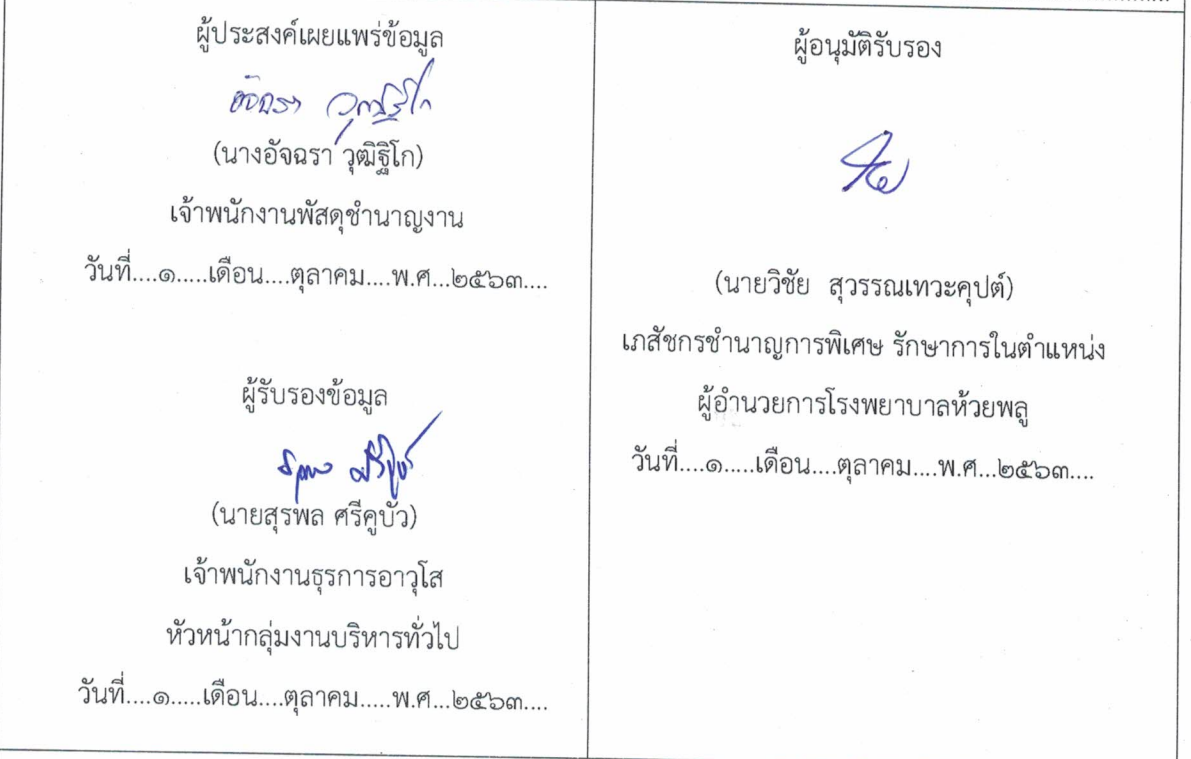 ผู้ประสงค์เผยแพร่ข้อมูล
อัจฉรา วุฒิฐิโก
(นางอัจฉรา วุฒิฐิโก)
เจ้าพนักงานพัสดุชำนาญงาน
วันที่....๑.....เดือน....ตุลาคม....พ.ศ...๒๕๖๓....
ผู้รับรองข้อมูล
(นายสุรพล ศรีคูบัว)
เจ้าพนักงานธุรการอาวุโส
หัวหน้ากลุ่มงานบริหารทั่วไป
วันที่....๑.....เดือน....ตุลาคม.....พ.ศ...๒๕๖๓....
ผู้อนุมัติรับรอง
(นายวิชัย สุวรรณเทวะคุปต์)
เภสัชกรชำนาญการพิเศษ รักษาการในตำแหน่ง
ผู้อำนวยการโรงพยาบาลห้วยพลู
วันที่....๑.....เดือน....ตุลาคม....พ.ศ...๒๕๖๓....